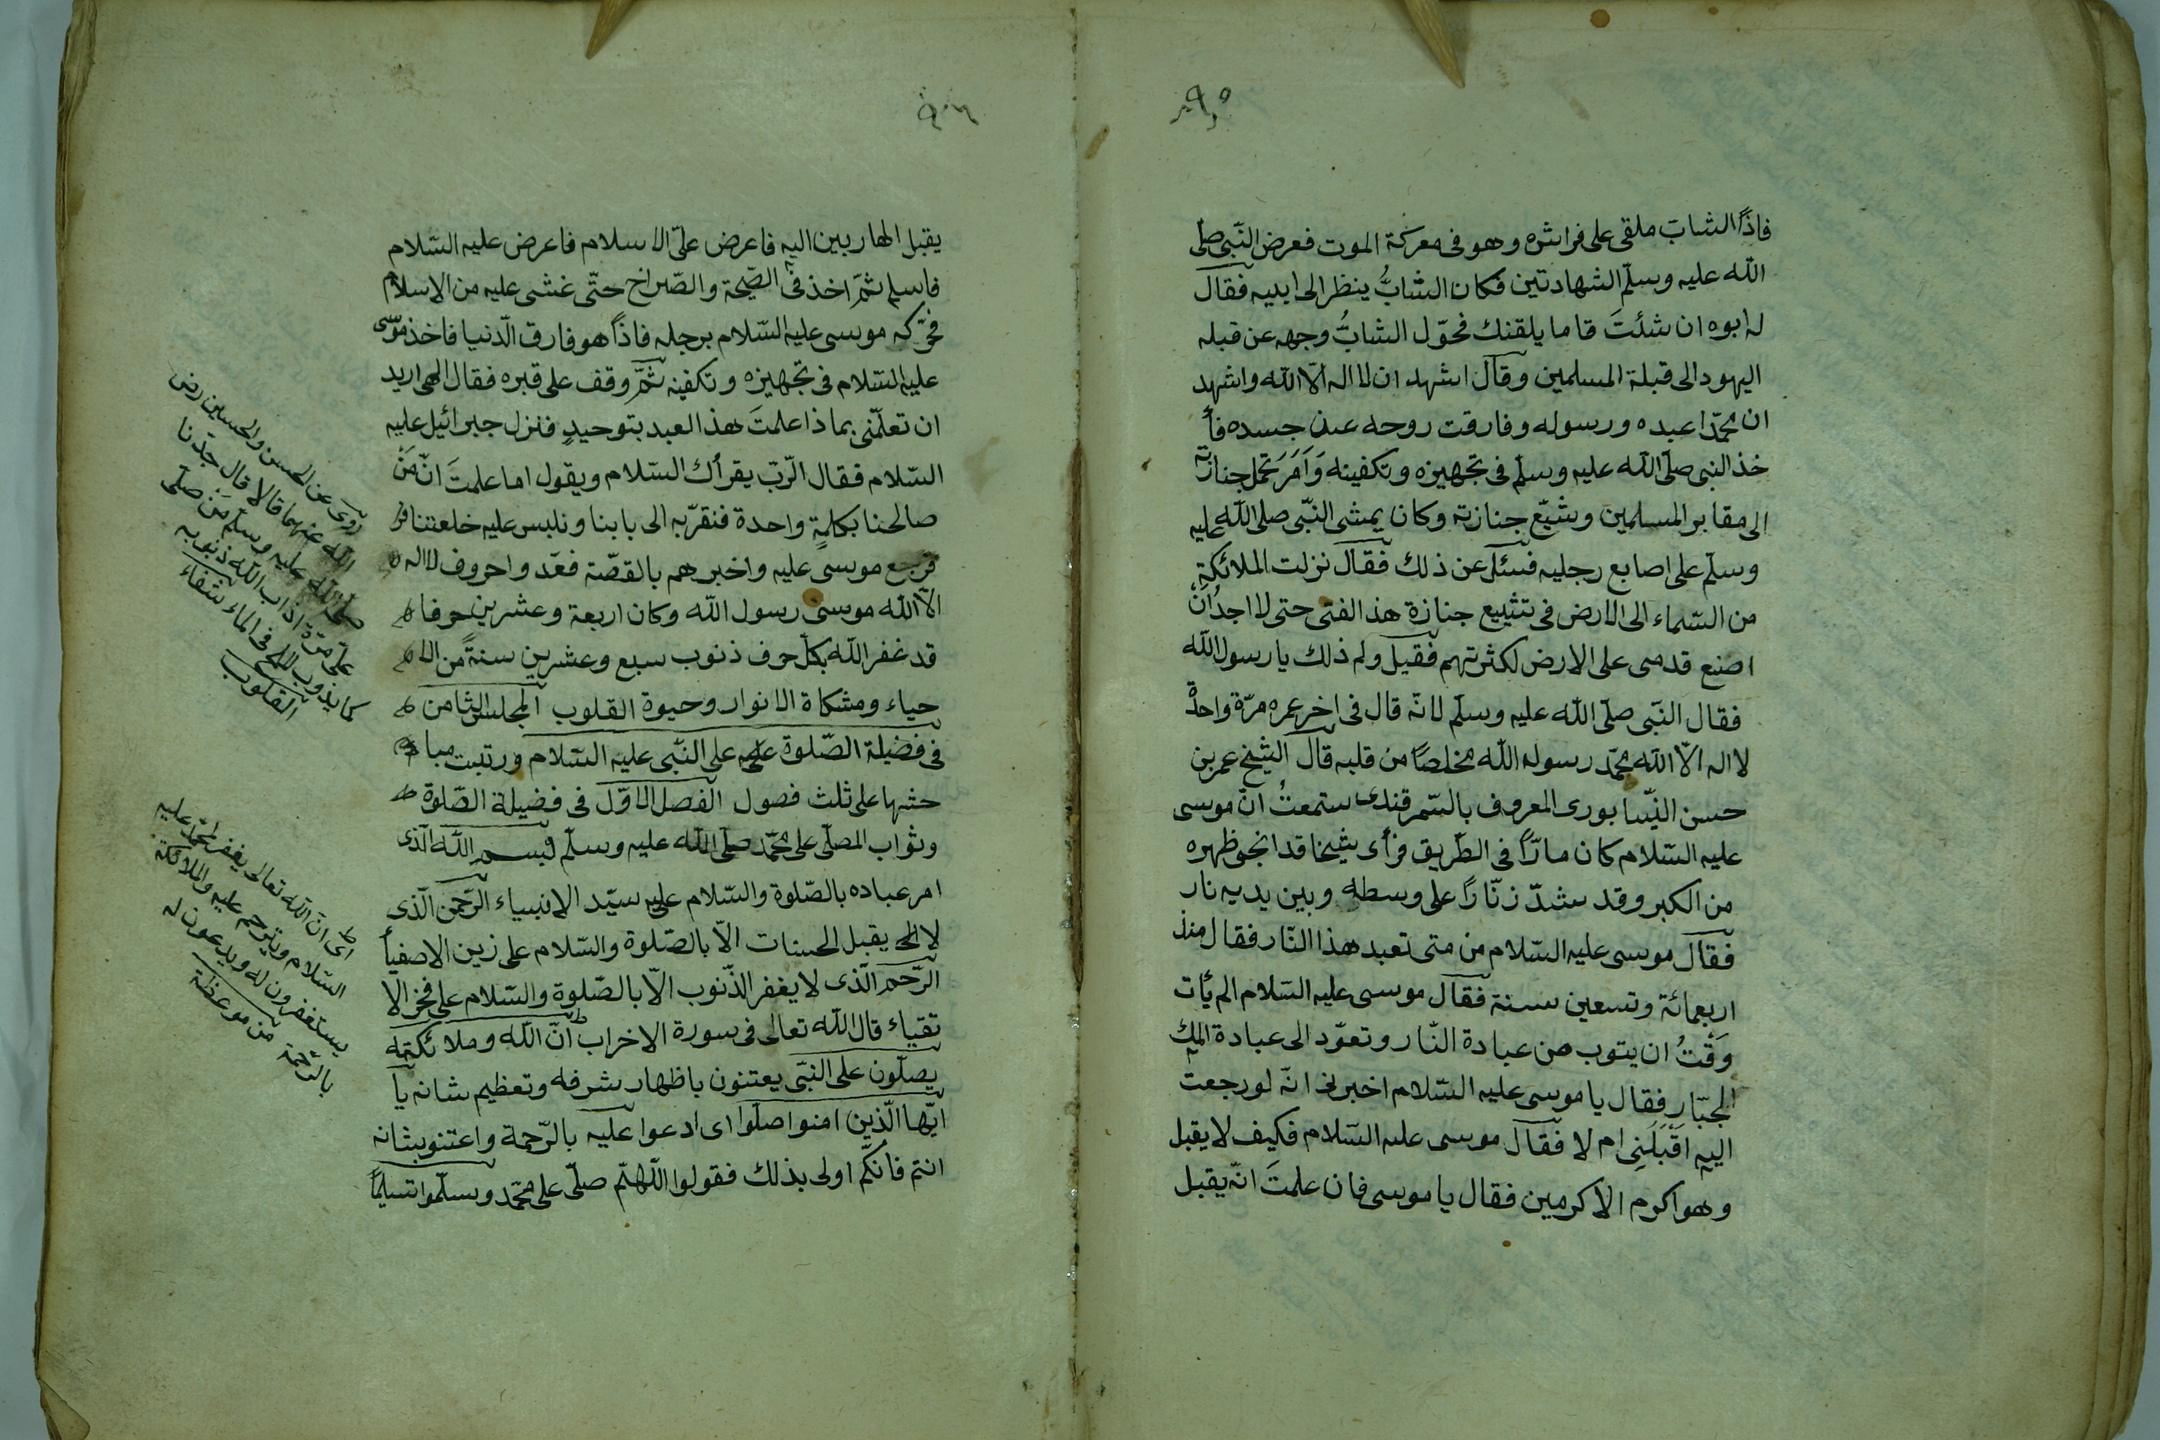 فاذًا الشاب ملقى على فراشه وهو فى معركة الموت فعرض النّبى صلّى
اللّه عليه وسلّم الشهادتين فكان الشابُّ ينظر الى ابيه فقال
له ابوه ان شئتَ قا ما يلقنك فحوّل الشابُّ وجهه عن قبله
اليهود الى قبلة المسلمين وقال اشهد ان لا اله الّا اللّه واشهد
ان محمّدا عبده ورسوله وفارقت روحه عن جسده فأ
خذ النبى صلّى اللّه عليه وسلّم فى تجهيزه وتكفينه وَاَمَرَ تحمل جنازته
الى مقابر المسلمين وشيّع جنازته وكان يمشى النّبى صلى اللّه عليه
وسلّم على اصابع رجليه فسئل عن ذلك فقال نزلت الملائكة
من السّماء الى الارض فى تشييع جنازة هذا الفتى حتى لا اجدُ اَنْ
اصنع قدمى على الارض لكثرتهم فقيل ولم ذلك يا رسول اللّه
فقال النّبى صلّى اللّه عليه وسلّم لانّه قال فى اخر عمره مرّة واحدة
لا اله الّا اللّه محمّد رسوله اللّه مخلصًا من قلبه قال الشيخ عمر بن
حسن النّيسابورى المعروف بالسّمرقندى ستمعتُ انّ موسى
عليه السّلام كان مارًّا فى الطّريق فرأى شيخا قد انحنى ظهره
من الكبر وقد شدّ زنّارًا على وسطه وبين يديه نار
فقال موسى عليه السّلام من متى تعبد هذا النّار فقال منذ
اربعمائة وتسعين سنة فقال موسى عليه السّلام الم يأت
وَقْتُ ان يتوب من عبادة النّار وتعوّد الى عبادة الملك
الجبّار فقال يا موسى عليه السّلام اخبرنى انّه لو رجعت
اليه اَقْبَلَنِى ام لا فقال موسى عليه السّلام فكيف لا يقبل
وهو اكرم الاكرمين فقال يا موسى فان علمتَ انّه يقبل
يقبل الهاربين اليه فاعرض علىّ الاسلام فاعرض عليه السّلام
فاسلم ثمّ اخذ فى الصّيحة والصّراخ حتّى غشى عليه من الاسلام
فحرّكه موسى عليه السّلام برجله فاذًا هو فارق الدّنيا فاخذ موسى
عليه السّلام فى تجهيزه وتكفينه ثمَّ وقف على قبره فقال الهى اريد
ان تعلّمنى بماذا علمتَ هذا العبد بتوحيدٍ فنزل جبرائيل عليه
السّلام فقال الرّبّ يقرأك السّلام ويقول اما علمتَ انّ مَنْ
صالحنا بكلمةٍ واحدة فنقرّبه الى بابنا ونلبس عليه خلعتنا
فرجع موسى عليه واخبرهم بالقصّة فعدّوا حروف لا اله
الّا اللّه موسى رسول اللّه وكان اربعة وعشرين حرفا
قد غفر اللّه بكلّ حرف ذنوب سبع وعشرين سنةً من الا
حياء ومشكاة الانوار وحيوة القلوب المجلس الثامن
فى فضيلة الصّلوة على النّبى عليه السّلام ورتبت مبا
حثها على ثلث فصول الفصل الاوّل فى فضيلة الصّلوة
وثواب المصلّى على محمّد صلّى اللّه عليه وسلّم فبسم اللّه الّذى
امر عباده بالصّلوة والسّلام على سيّد الانبياء الرّحمن الّذى
لا يقبل الحسنات الّا بالصّلوة والسّلام على زين الاصفيأ
الرّحيم الّذى لا يغفر الذّنوب الّا بالصّلوة والسّلام على فخر الا
تقياء قال اللّه تعالى فى سورة الاخراب انّ اللّه وملائكته
يصلّون على النبّى يعتنون باظهار شرفه وتعظيم شانه يا
ايّها الّذين امنوا صلّوا اى ادعوا عليه بالرّحمة واعتنو بشانه
انتم فانّكم اولى بذلك فقولوا اللّهمّ صلّى على محمّد وسلّموا تسليمًا
روى عن الحسن والحسين رضى
اللّه عنهما قالا قال جدّنا
صلّى اللّه عليه وسلّم مَنْ صلّى
علىّ مرّة اذاب اللّه ذنوبه
كما يذوب الملح فى الماء شفاء
القلوب
اى انّ اللّه تعالى يغفر لمحمّد عليه
السّلام ويترحم عليه والملائكة
يستغفرون له ويدعون له
بالرّحمة من موعظة